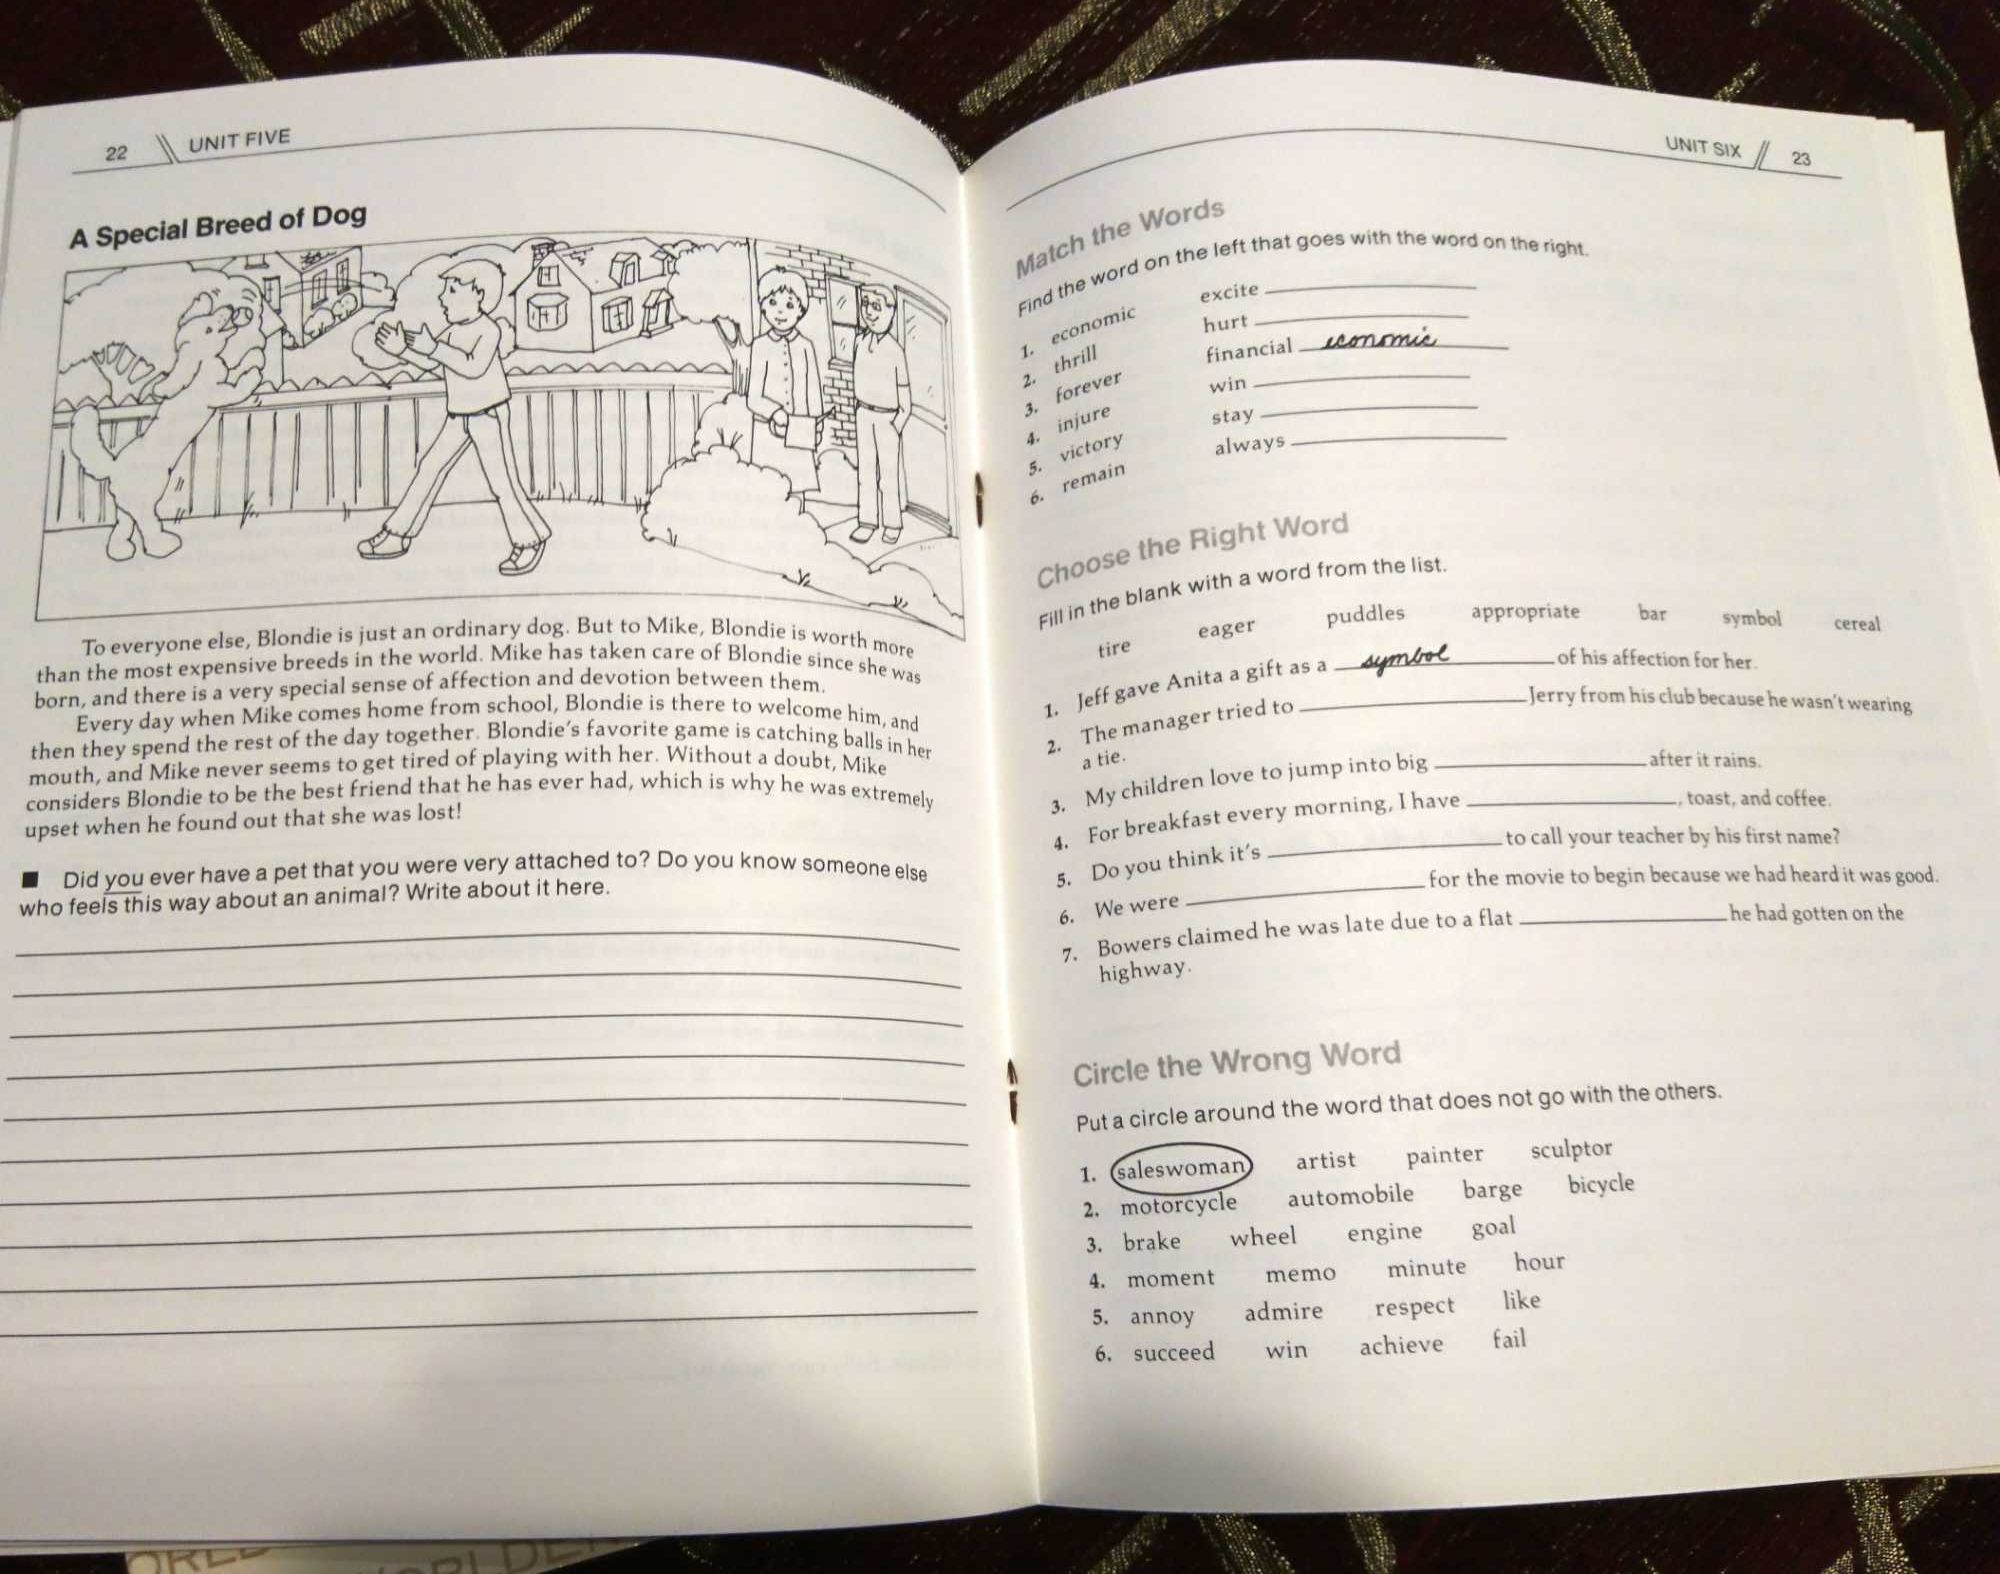 22 UNIT FIVE
A Special Breed of Dog
To everyone else, Blondie is just an ordinary dog. But to Mike, Blondie is worth more
than the most expensive breeds in the world. Mike has taken care of Blondie since she was
born, and there is a very special sense of affection and devotion between them.
Every day when Mike comes home from school, Blondie is there to welcome him, and
then they spend the rest of the day together. Blondie's favorite game is catching balls in her
mouth, and Mike never seems to get tired of playing with her. Without a doubt, Mike
considers Blondie to be the best friend that he has ever had, which is why he was extremely
upset when he found out that she was lost!
■ Did you ever have a pet that you were very attached to? Do you know someone else
who feels this way about an animal? Write about it here.
UNIT SIX 23
Match the Words
Find the word on the left that goes with the word on the right.
1. economic excite
2. thrill hurt
3. forever financial economic
4. injure win
5. victory stay
6. remain always
Choose the Right Word
Fill in the blank with a word from the list.
tire eager puddles appropriate bar symbol cereal
1. Jeff gave Anita a gift as a symbol of his affection for her.
2. The manager tried to ____ Jerry from his club because he wasn't wearing
a tie.
3. My children love to jump into big ____ after it rains.
4. For breakfast every morning, I have ____, toast, and coffee.
5. Do you think it's ____ to call your teacher by his first name?
6. We were ____ for the movie to begin because we had heard it was good.
7. Bowers claimed he was late due to a flat ____ he had gotten on the
highway.
Circle the Wrong Word
Put a circle around the word that does not go with the others.
1. saleswoman artist painter sculptor
2. motorcycle automobile barge bicycle
3. brake wheel engine goal
4. moment memo minute hour
5. annoy admire respect like
6. succeed win achieve fail